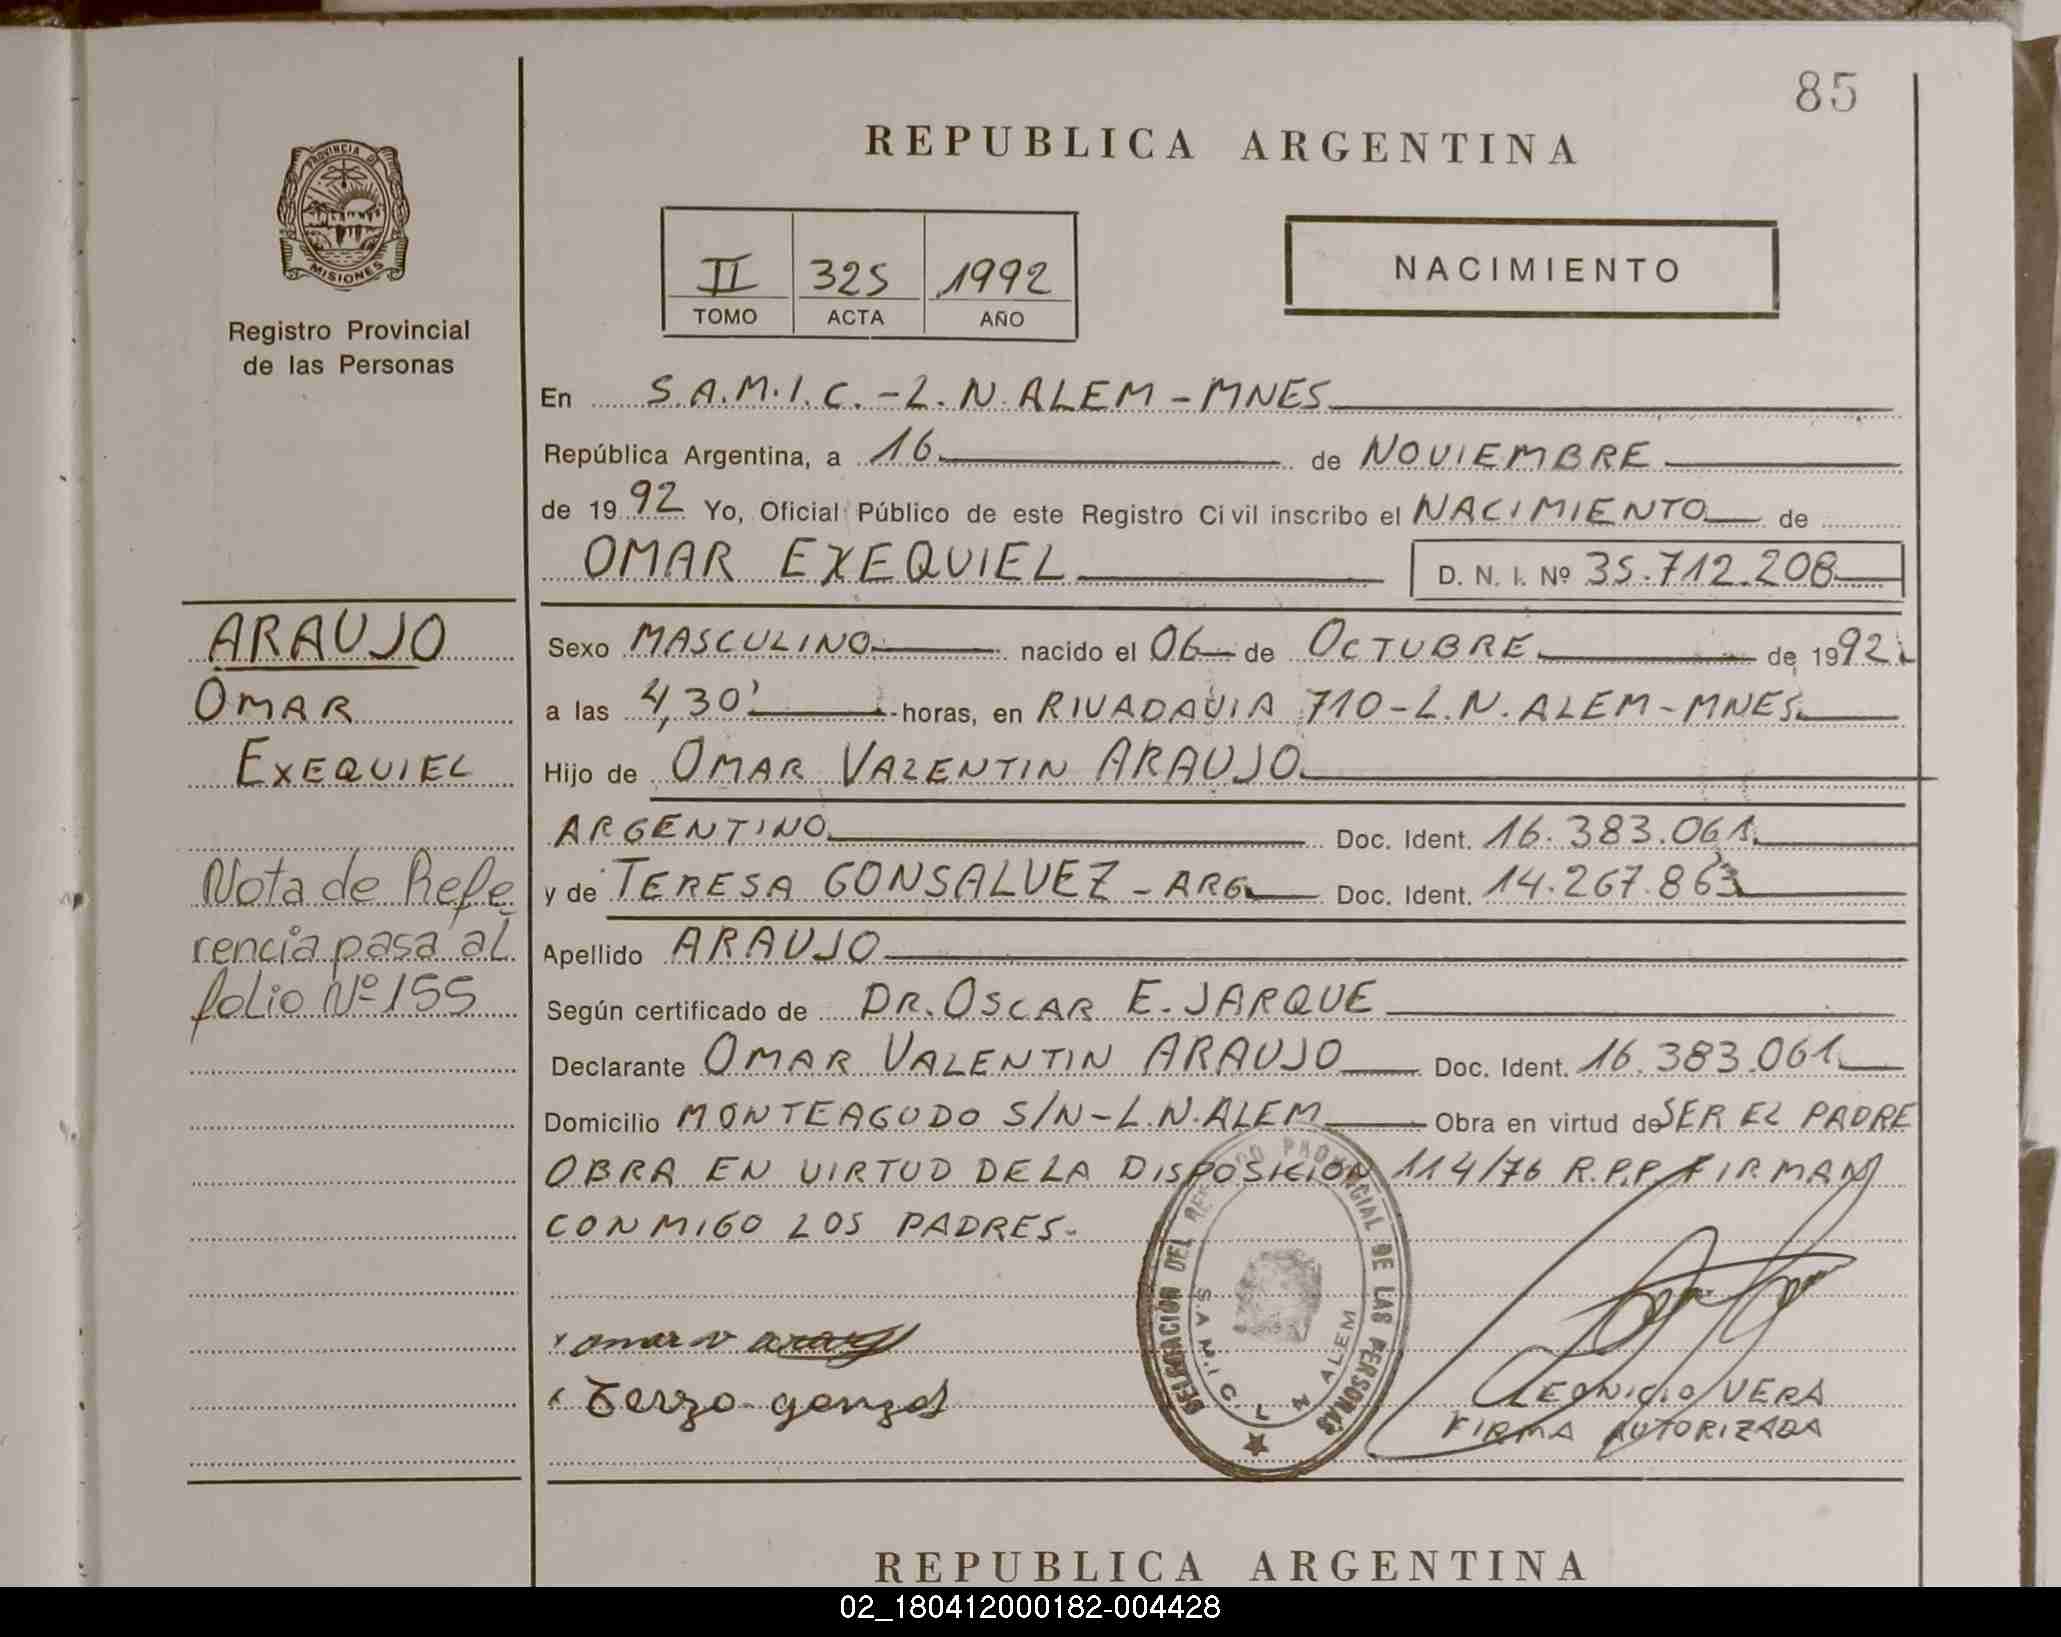 85
REPUBLICA ARGENTINA
PROVINCIA DE
MISIONES
Registro Provincial
de las Personas
II 325 1992
TOMO ACTA AÑO
NACIMIENTO
En S.A.M.I.C.-L.N.ALEM-MNES
República Argentina, a 16 de NOVIEMBRE
de 1992 Yo, Oficial Público de este Registro Civil inscribo el NACIMIENTO de
OMAR EXEQUIEL D. N. I. Nº 35.712.208
ARAUJO
OMAR
EXEQUIEL
Nota de Refe
rencia pasa al
folio Nº 155
Sexo MASCULINO nacido el 06 de OCTUBRE de 1992
a las 4,30' horas, en RIVADAVIA 710-L.N.ALEM-MNES
Hijo de OMAR VALENTIN ARAUJO
ARGENTINO Doc. Ident. 16.383.061
y de TERESA GONSALVEZ - ARG Doc. Ident. 14.267.863
Apellido ARAUJO
Según certificado de DR. OSCAR E. JARQUE
Declarante OMAR VALENTIN ARAUJO Doc. Ident. 16.383.061
Domicilio MONTEAGUDO S/N-L.N.ALEM Obra en virtud de SER EL PADRE
OBRA EN VIRTUD DE LA DISPOSICION 114/76 R.P.P. FIRMAN
CONMIGO LOS PADRES.
DELEGACIÓN DEL REGISTRO PROVINCIAL DE LAS PERSONAS
S.A.M.I.C. L N ALEM
omar v
LEONICIO VERA
FIRMA AUTORIZADA
REPUBLICA ARGENTINA
02_180412000182-004428